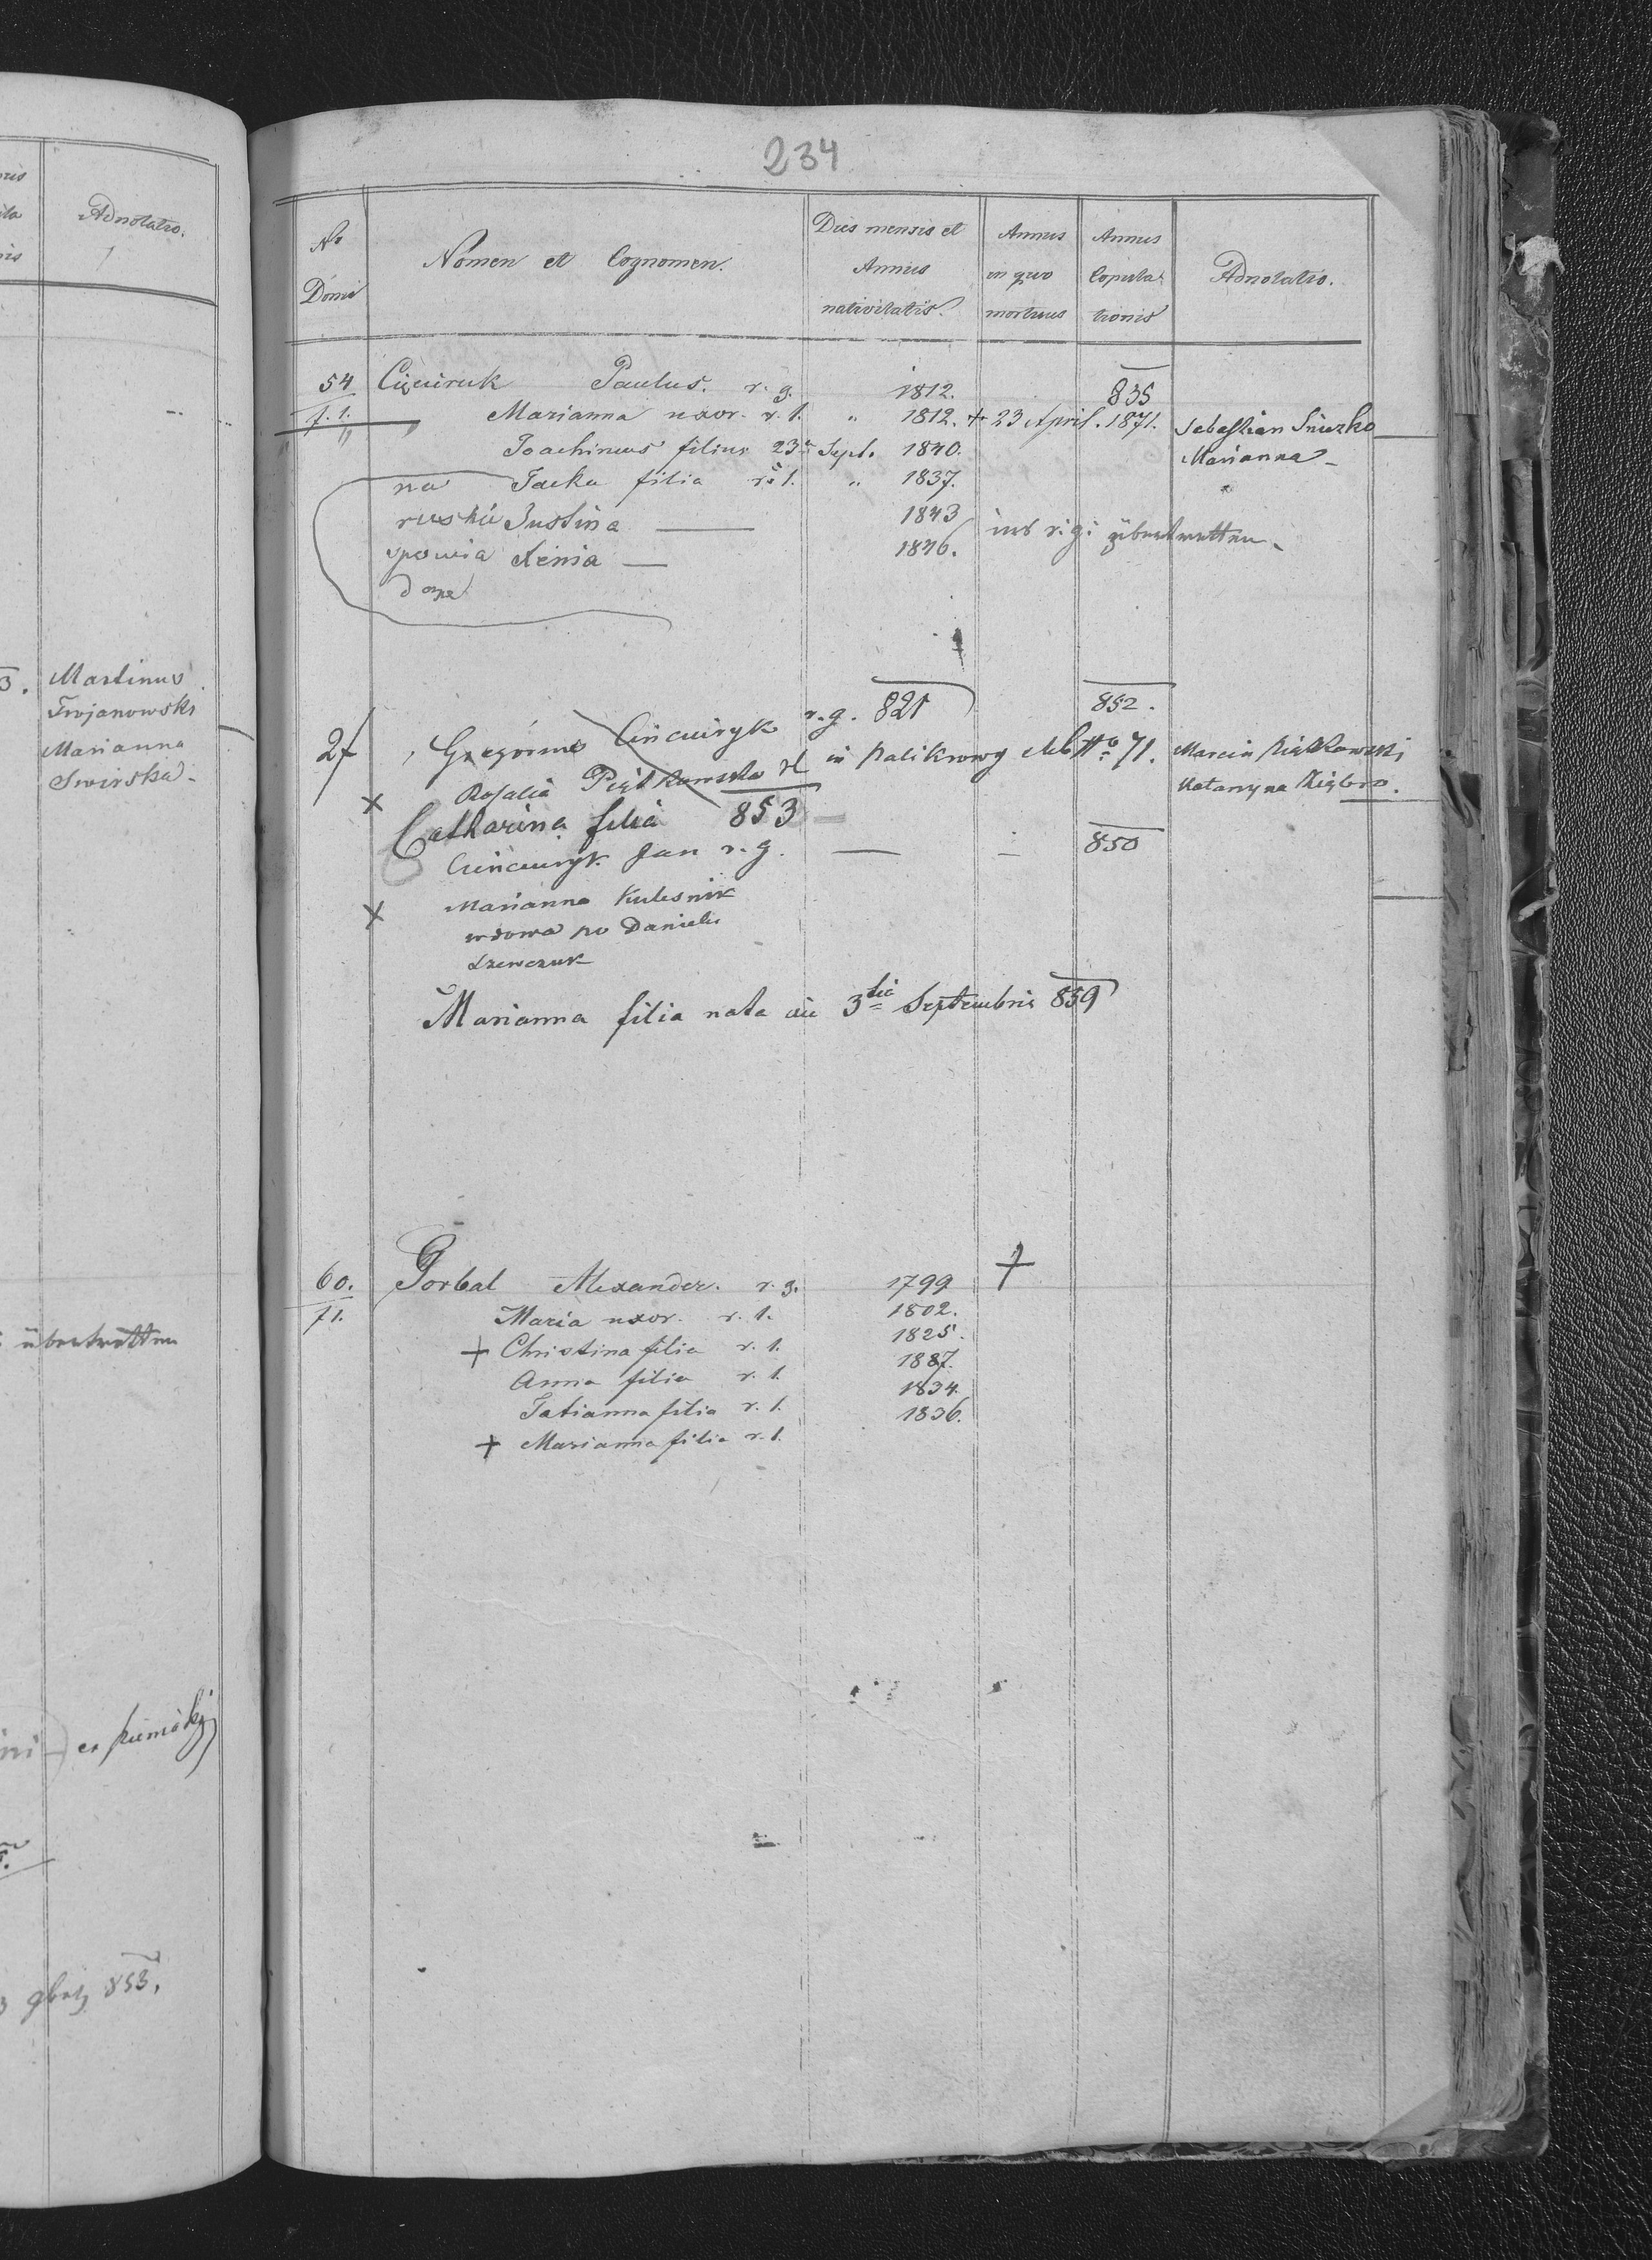 234
Nr Domi
Nomen et Cognomen.
Dies mensis et Annus nativitatis.
Annus in quo mortuus
Annus Copula- tionis
Adnotatio.
54 Paulus. r. g. 1812. 835
f. 1. " Marianna uxor. r. l. " 1812. + 23 April. 1871. Sebastian
Marianna
Joachimus filius 23 Sept. 1840.
na Jacka filia r. l. " 1837.
ruskie Justina — 1843
Xenia — 1846. ins r. g. übertretten
r. g. 821 852.
27 Gregorius
Rosalia Piątkowska rl in Palikrowy sub No 71. Marcin Piątkowski
Catharina filia 853 — Katarzyna
Jan r. g. — — 850
Marianna Kulesnik
wdowa po Danielu
Szewczuk
Marianna filia nata die 3tia Septembris 859
60. Gorbal Alexander. r. g. 1799 +
71. Maria uxor. r. l. 1802.
+ Christina filia r. l. 1825.
Anna filia r. l.
Tatianna filia r. l. 1834.
+ Marianna filia r. l. 1836.
Adnotatio.
Martinus
Trojanowski
Marianna
Swirska
übertretten
853.